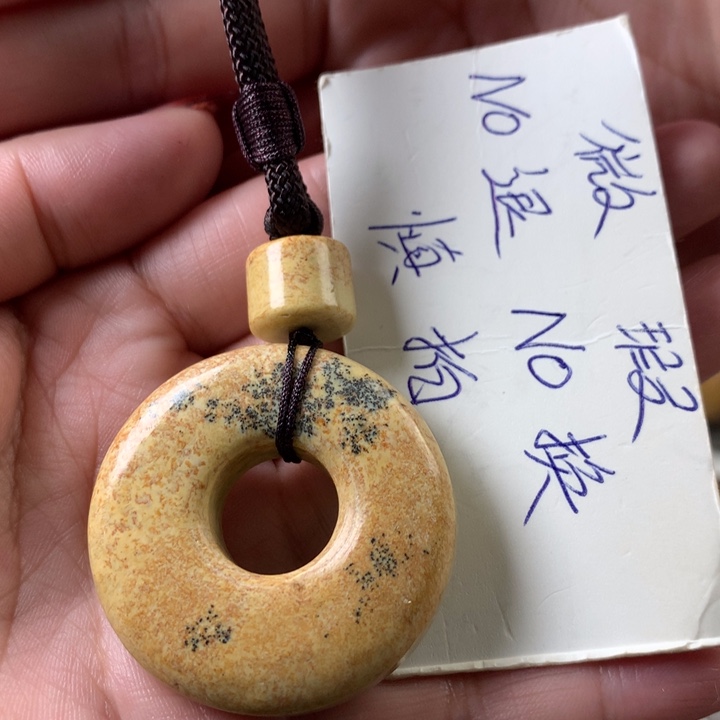 微瑕
NO退NO换
慎拍